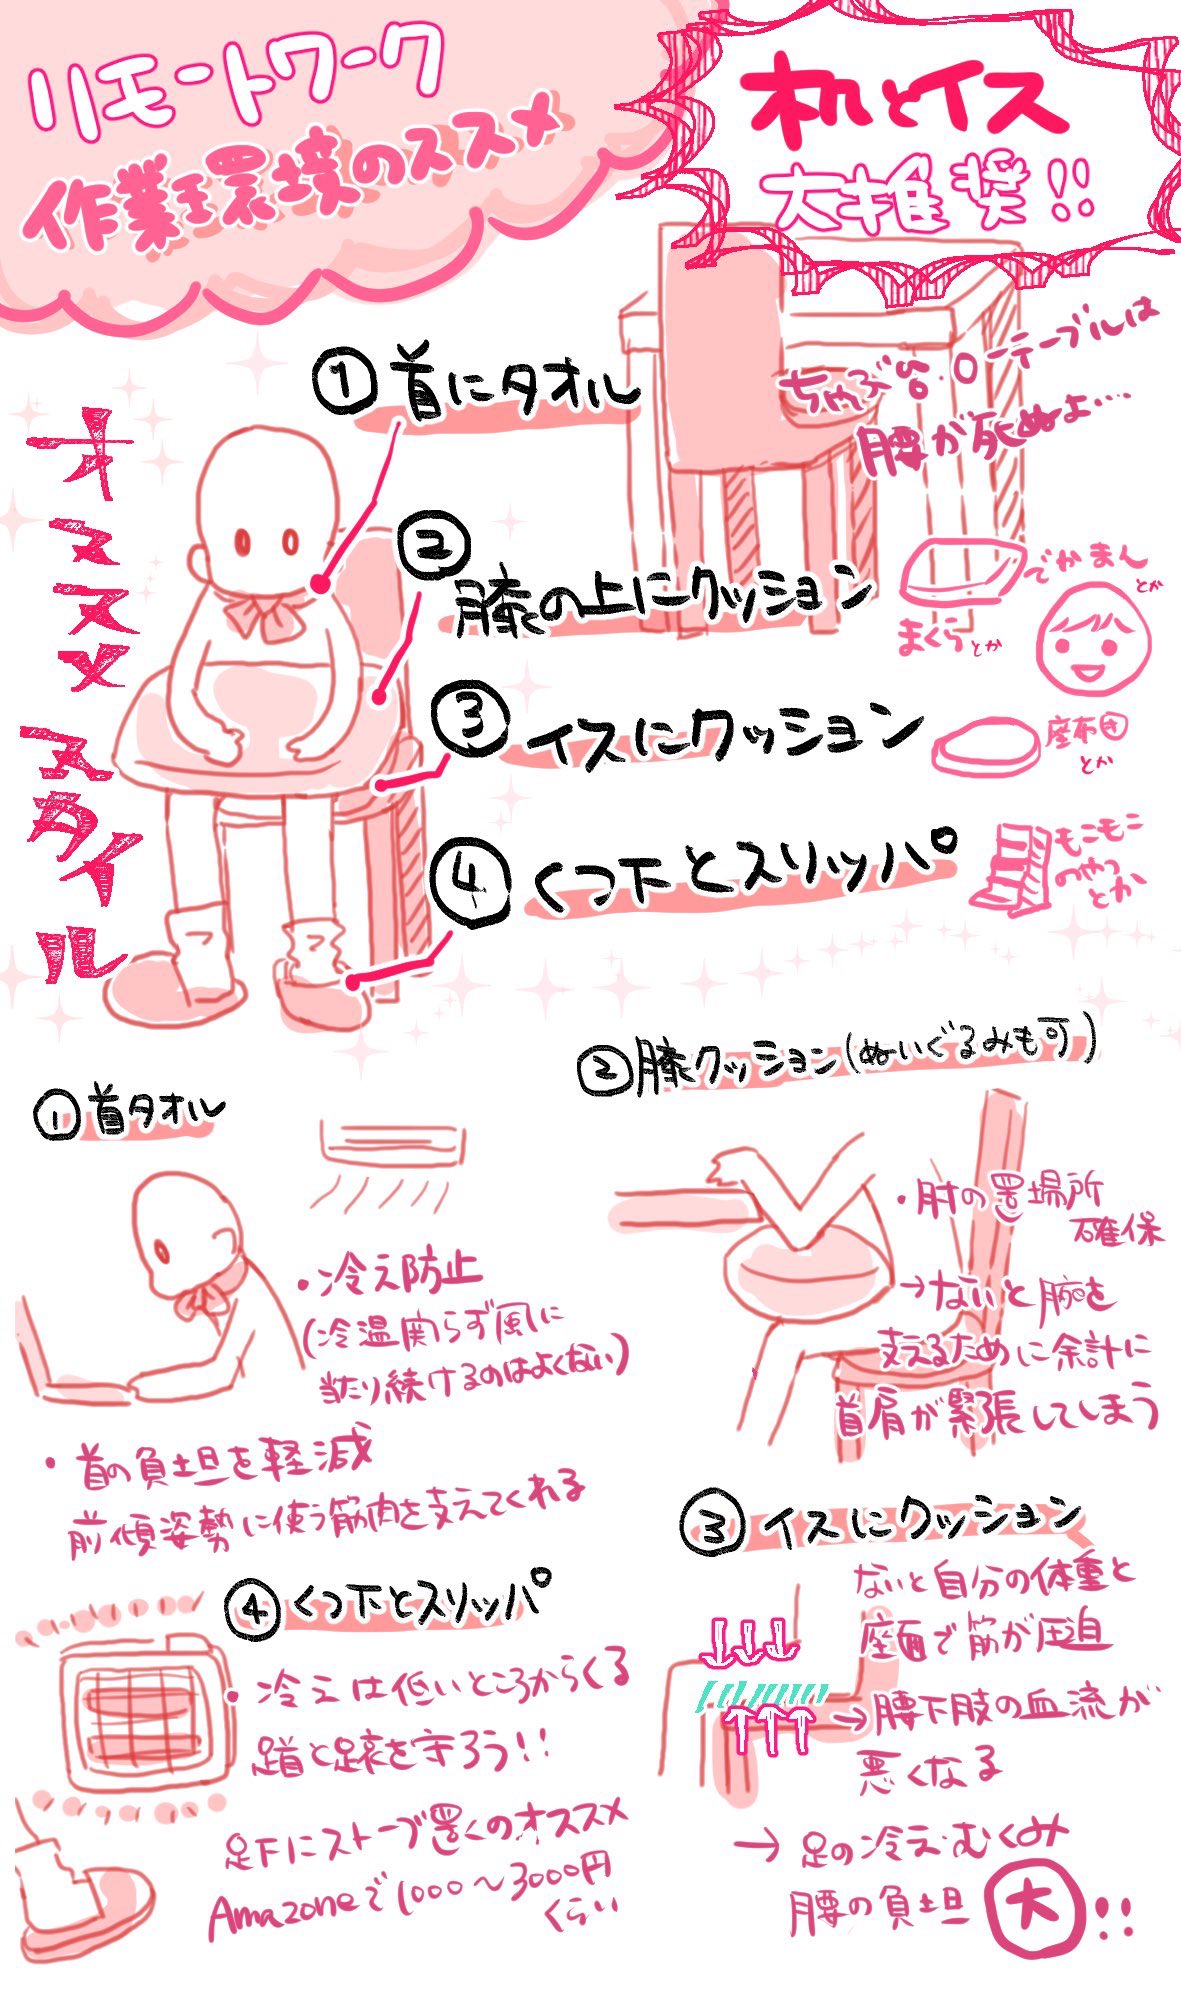 リモートワーク
作業環境のススメ
机とイス
大推奨!!
ちゃぶ台・ローテーブルは
腰が死ぬよ…
オススメスタイル
① 首にタオル
② 膝の上にクッション
でかまん
とか
まくらとか
③ イスにクッション
座布団
とか
④ くつ下とスリッパ
もこもこ
のやつ
とか
① 首タオル
・冷え防止
(冷温関らず風に
当たり続けるのはよくない)
・首の負担を軽減
前傾姿勢に使う筋肉を支えてくれる
② 膝クッション(ぬいぐるみも可)
・肘の置場所
確保
→ないと腕を
支えるために余計に
首肩が緊張してしまう
③ イスにクッション
ないと自分の体重と
座面で筋が圧迫
→腰下肢の血流が
悪くなる
→足の冷え・むくみ
腰の負担 大!!
④ くつ下とスリッパ
・冷えは低いところからくる
足首と足裏を守ろう!!
足下にストーブ置くのオススメ
Amazoneで1000~3000円
くらい